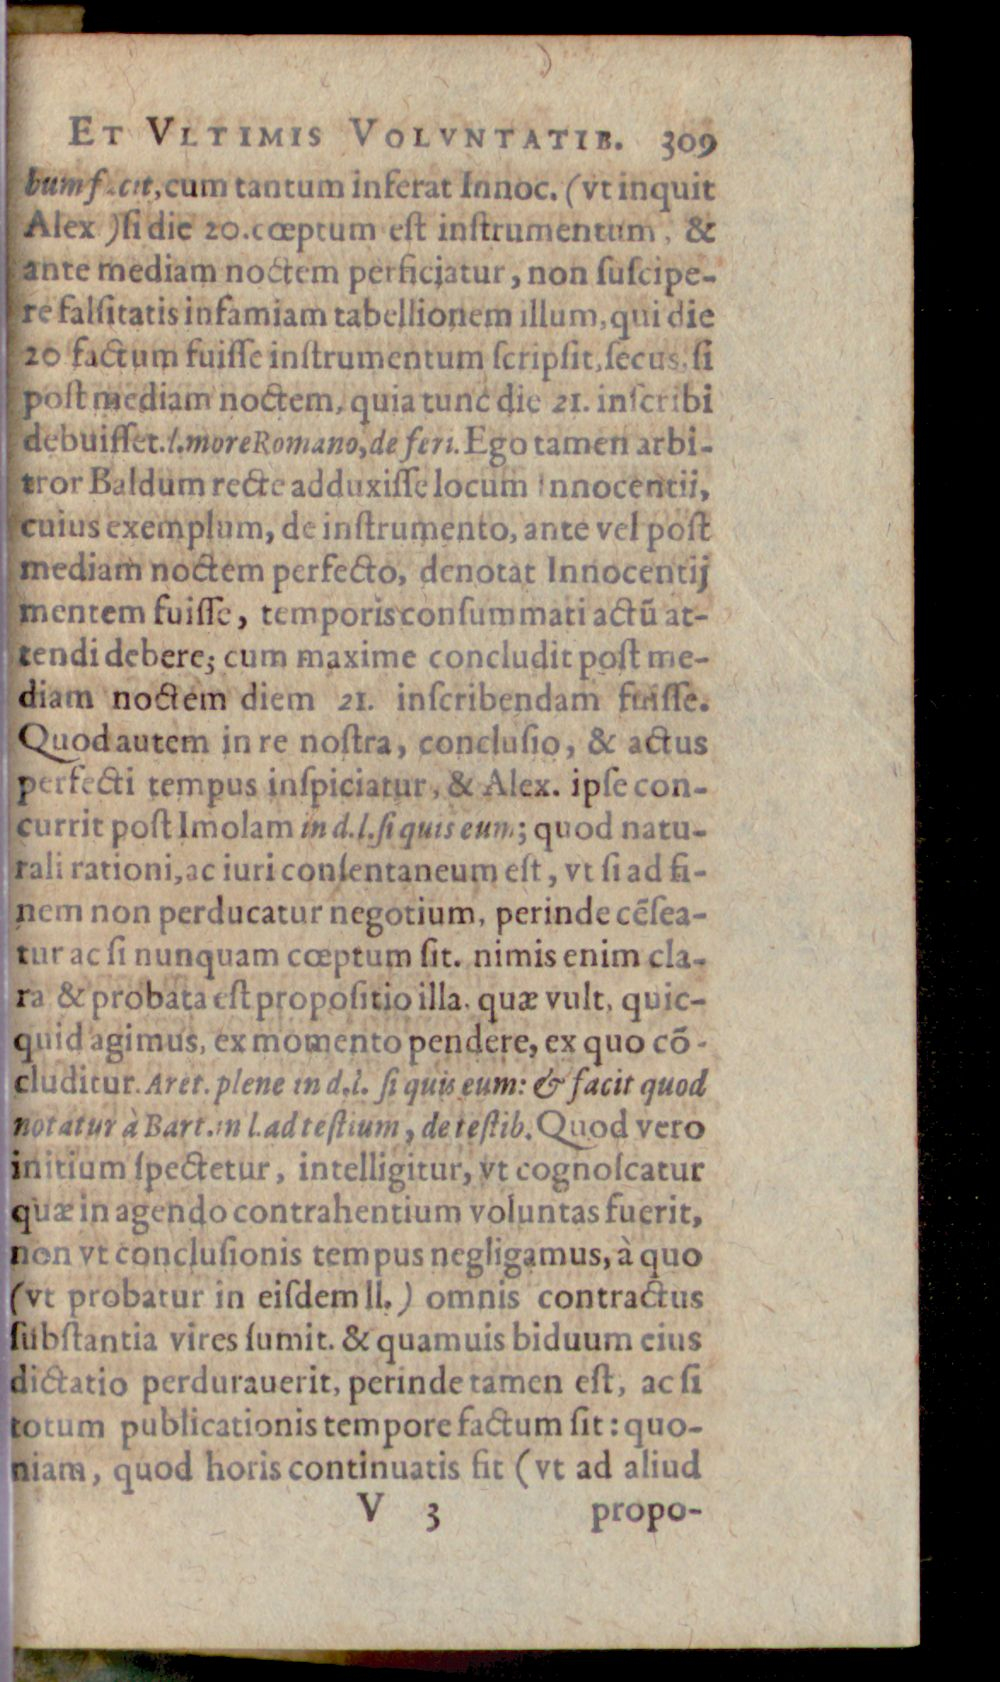 ET VLTIMIS VOLVNTATIB. 309
bum facit, cum tantum inferat Innoc. (vt inquit
Alex.) ſi die 20. cœptum eſt inſtrumentum, &
ante mediam noctem perficiatur, non ſuſcipe-
re falſitatis infamiam tabellionem illum, qui die
20 factum fuiſſe inſtrumentum ſcripſit, ſecus, ſi
poſt mediam noctem, quia tunc die 21. inſcribi
debuiſſet. l. more Romano, de feri. Ego tamen arbi-
tror Baldum recte adduxiſſe locum Innocentii,
cuius exemplum, de inſtrumento, ante vel poſt
mediam noctem perfecto, denotat Innocentij
mentem fuiſſe, temporis conſummati actū at-
tendi debere; cum maxime concludit poſt me-
diam noctem diem 21. inſcribendam fuiſſe.
Quod autem in re noſtra, concluſio, & actus
perfecti tempus inſpiciatur, & Alex. ipſe con-
currit poſt Imolam in d. l. ſi quis eum; quod natu-
rali rationi, ac iuri conſentaneum eſt, vt ſi ad fi-
nem non perducatur negotium, perinde cēſea-
tur ac ſi nunquam cœptum ſit. nimis enim cla-
ra & probata eſt propoſitio illa. quæ vult, quic-
quid agimus, ex momento pendere, ex quo cō-
cluditur. Aret. plene in d. l. ſi quis eum: & facit quod
notatur à Bart. in l. ad teſtium, de teſtib. Quod vero
initium ſpectetur, intelligitur, vt cognoſcatur
quæ in agendo contrahentium voluntas fuerit,
non vt concluſionis tempus negligamus, à quo
(vt probatur in eiſdem ll.) omnis contractus
ſubſtantia vires ſumit. & quamuis biduum eius
dictatio perdurauerit, perinde tamen eſt, ac ſi
totum publicationis tempore factum ſit: quo-
niam, quod horis continuatis fit (vt ad aliud
V 3 propo-